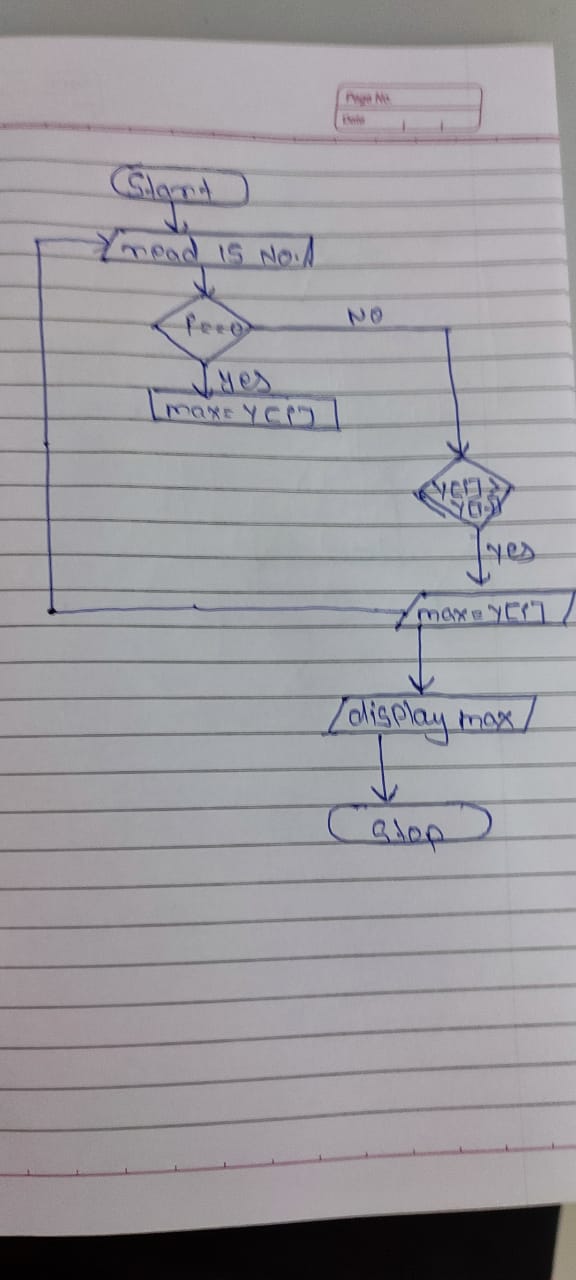 Page No.
Date
Start
read 15 No.
NO
yes
max= Y[i]
yes
max=Y[i]
display max
Stop